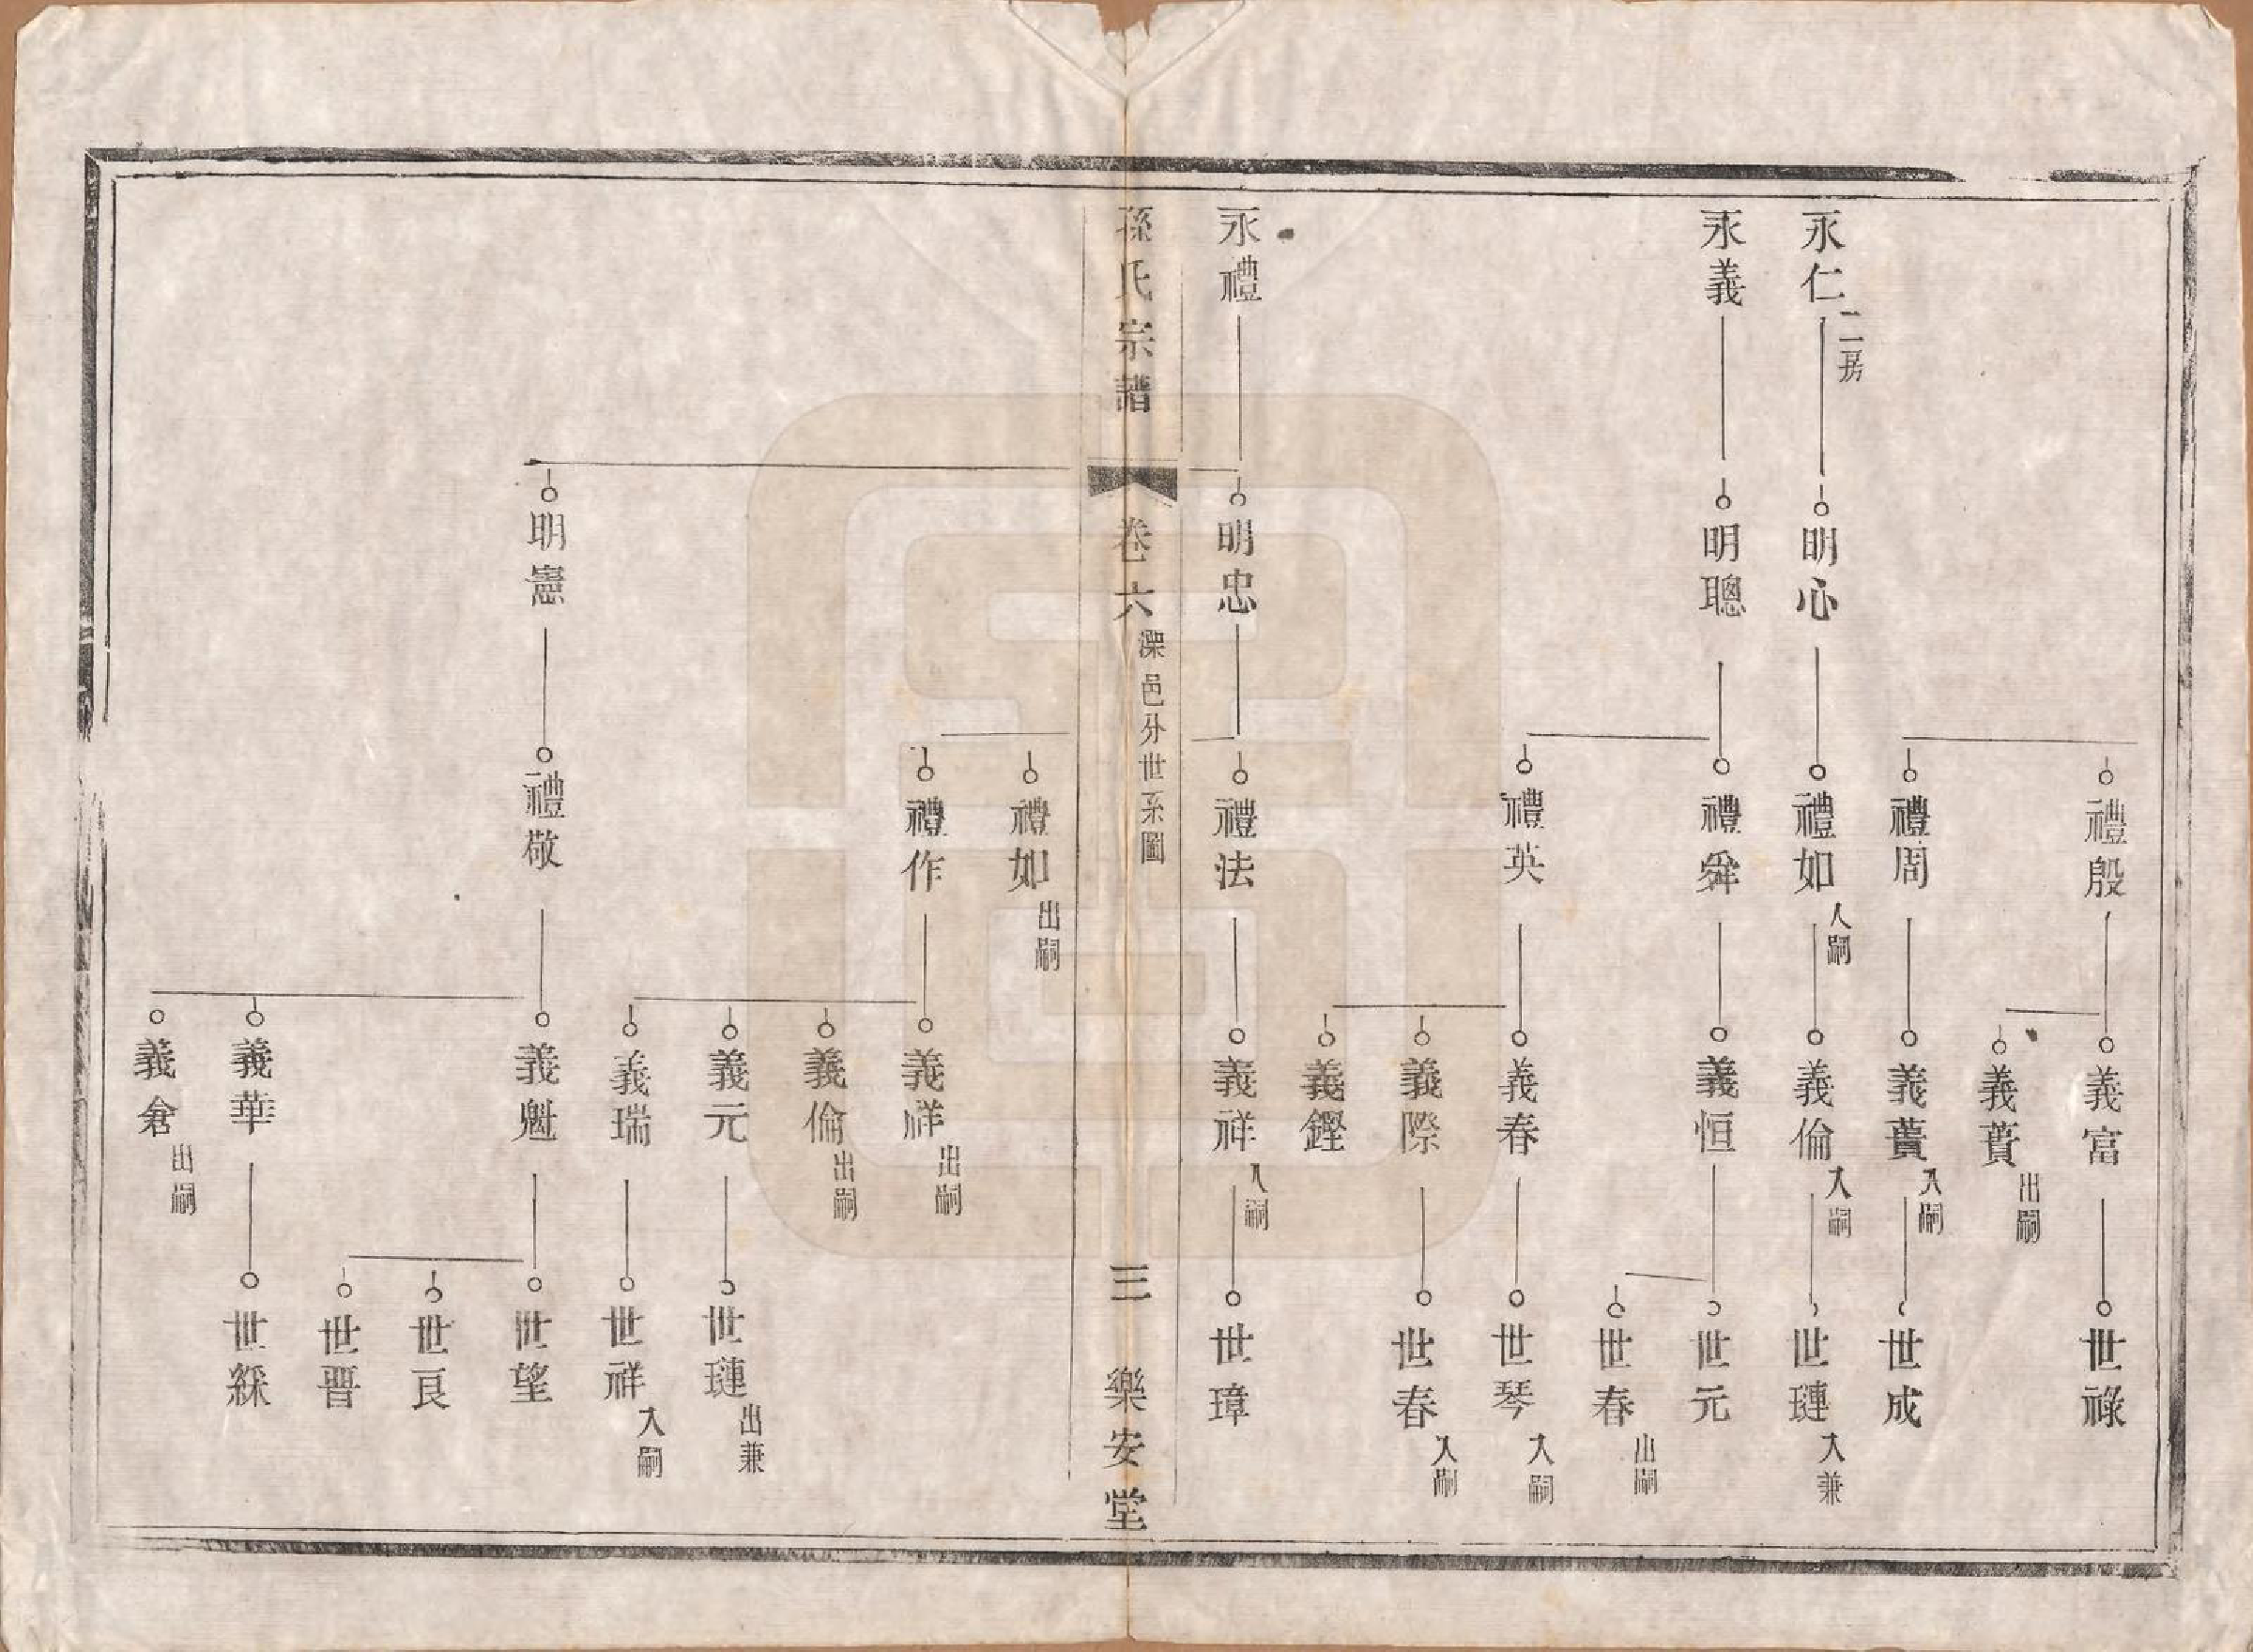 禮殷
義富
世祿
義蕡 出嗣
禮周
義蕡 入嗣
世成
永仁 二房
明心
禮如 入嗣
義倫 入嗣
世璉 入兼
永義
明聰
禮舜
義恒
世元
世春 出嗣
禮英
義春
世琴 入嗣
義際
世春 入嗣
義鏗
永禮
明忠
禮法
義祥 入嗣
世璋
孫氏宗譜
卷六 深邑分世系圖
三
樂安堂
禮如 出嗣
禮作
義祥 出嗣
義倫 出嗣
義元
世璉 出兼
義瑞
世祥 入嗣
明憲
禮敬
義魁
世望
世良
世晉
義華
世綵
義倉 出嗣